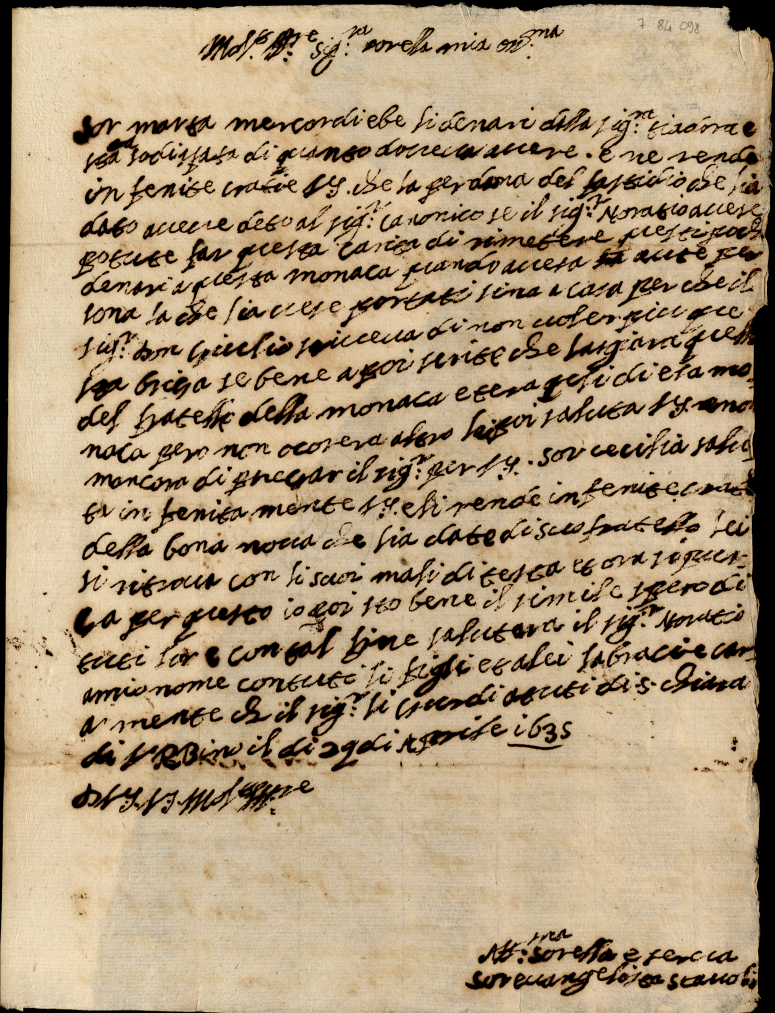 7 84 098
Mol.to Ill.re Sig.ra sorella mia oss.ma
Sor marta mercordi ebe li denari dalla sig.ra e
sta sodisfata di quanto doveva avere. e ne rende
infenite gratie VS. che la perdona del fastidio che lia
dato aveva deto al sig.r Canonico se il sig.r Horatio avese
potute far questa carita di rimetere questi pochi
denari a questa monaca quando avesa aute per
sona fa che lia vese portati sina a casa perche il
sig.r don Giulio diceva di non voler piu que
sta briga se bene a poi scrite che lasgiara quelli
del fratello della monaca e tera quesi di esa mo
naca pero non ocorera altro lei poi saluta VS. e no
mancora di pregar il sig.r per VS. Sor cecilia salu
ta infenita mente VS. e li rende infenite grati
della bona nova che lia date di suo fratello lei
si ritrova con li suoi mali di testa et ora si pur
ga per questo io poi sto bene il simile spero di
tuti lor e con tal fine salutera il sig.r Horatio
a mio nome con tuti li figli et a lei la bracie car
a mente ch il sig.r li guardi a tuti di S. chiara
di VRBino il di 29 di Aprile 1635
D VS. Mol.to Ill.re
Aff.ma sorella e serva
Sor evangelista stacoli